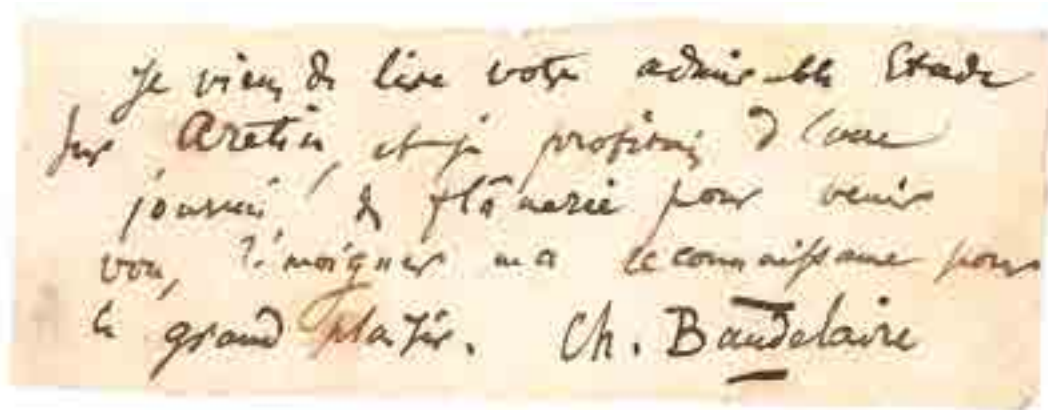 Je viens de lire votre admirable Etude
sur Aretin, et je profitais d'une
journée de flânerie pour venir
vous témoigner ma reconnaissance pour
le grand plaisir. Ch. Baudelaire